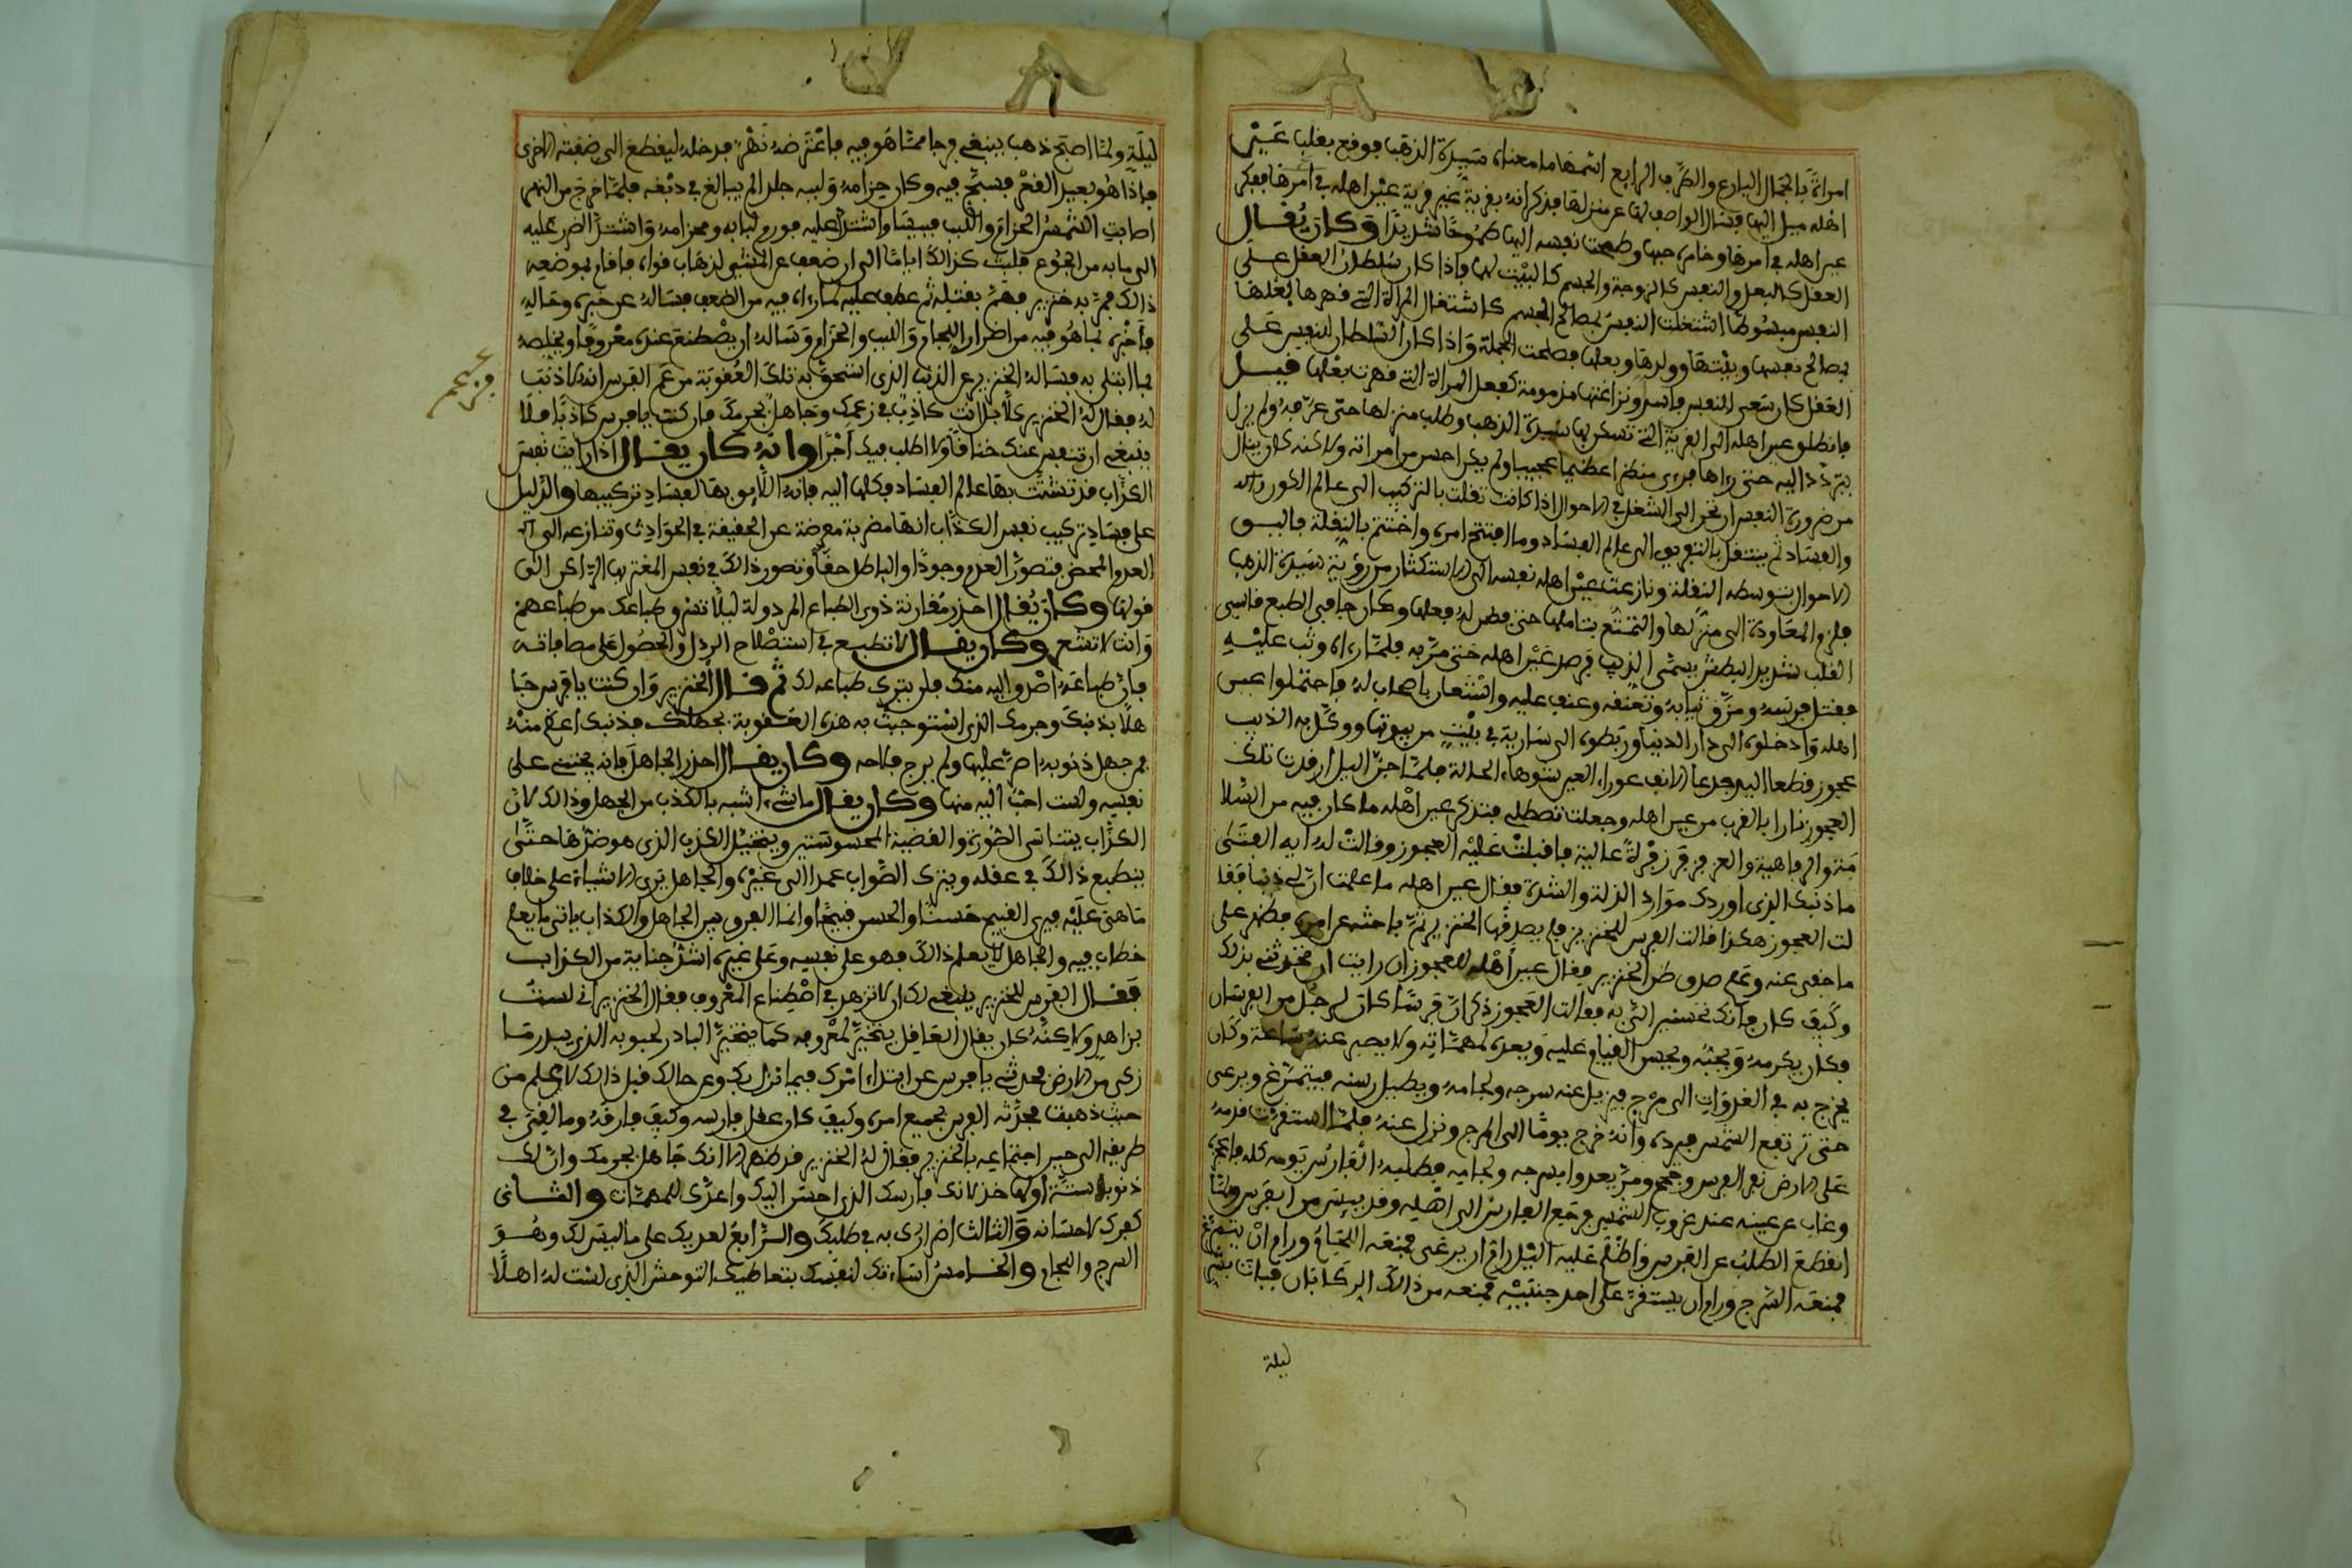 امراة بالجمال البارع والظرف الرابع اسمها ما معناه سيدة الذهب فوقع بقلب عين
اهله ميل اليها فسال الواصف لها عن منزلها فذكر انه بقرية غير قرية عين اهله في امرها ففكر
عين اهله في امرها وخامره حبها وطمحت نفسه اليها طموحا شديدا وكان يقال
العقل كالبعل والنفس كالزوجة والجسم كالبيت لها فاذا كان سلطان العقل على
النفس مبسوطا اشتغلت النفس بمصالح الجسم كاشتغال المراة التي قهرها بعلها
بمصالح نفسها وبيتها وولدها وبعلها فصلحت الجملة واذا كان السلطان للنفس على
العقل كان سعي النفس فاسد ونزاعتها مذمومة كفعل المراة التي قهرت بعلها قيل
فانطلق عين اهله الى القرية التي تسكن بها سيدة الذهب وطلب منزلها حتى عرفه ولم يزل
يتردد اليه حتى رءاها فرءى منظرا عظيما عجيبا ولم يكن احسن من امراته ولاكنه كان ينال
من ضرورة النفس ان تحن الى الشغل في الاحوال اذا كانت نقلت بالتركيب الى عالم الكون
والفساد ثم ينتقل بالتفريق الى عالم الفساد وما افتتح امره واختتم بالنقلة فاليق
الاحوال بتوسطه النقلة ونازعت عين اهله نفسه الى الاستكثار من رؤية سيدة الذهب
فلزم المعاودة الى منزلها والتمتع بتاملها حتى فطن له بعلها وكان جافي الطبع قاسي
القلب شديد البطش يسمى الذيب فرصد عين اهله حتى مر به فلما رءاه وثب عليه
فقتل فرسه ومزق ثيابه وتعنفه وعنف عليه واستعان باصحاب له فاحتملوا عين
اهله وادخلوه الى دار الدنيا وربطوه الى سارية في بيت من بيوتها ووكل به الذيب
عجوز قطعا اليد جدعا الانف عوراء العين شوهاء الحالة فلما جن اليل اوقدت تلك
العجوز نارا بالقرب من عين اهله وجعلت تصطلي فتذكر عين اهله ما كان فيه من السلا
مة والرفاهية والعز فزفر زفرة عالية فاقبلت عليه العجوز وقالت له ايه الفتى
ما ذنبك الذي اوردك موارد الذلة والشدة فقال عين اهله ما علمت ان لي ذنبا فقا
لت العجوز هكذا قالت الفرس للخنزير فلم يصدقها الخنزير ثم باحثه عن امره فظهر على
ما خفي عنه وعلم صدق ظن الخنزير فقال عين اهله للعجوز ان رايت ان تحدثني بذلك
وكيف كان فانك تحسنين الي به فقالت العجوز ذكر ان فرسا كان لرجل من الفرسان
فكان يكرمه ويحبه ويحسن القيام عليه ويعده لمهماته ولا يصبر عنه ساعة وكان
يخرج به في الغدوات الى مرج فيزيل عنه سرجه ولجامه ويطيل رسنه فيتمرغ ويرعى
حتى ترتفع الشمس فيرده وانه خرج يوما الى المرج ونزل عنه فلما استقرت قدمه
على الارض نفر الفرس وجمح ومر يعدوا بسرجه ولجامه فطلبه الفارس يومه كله فاعجزه
وغاب عن عينه عند غروب الشمس فرجع الفارس الى اهله وقد يئس من الفرس ولما
انقطع الطلب عن الفرس واظلم عليه اليل رام ان يرعى فمنعه اللجام ورام ان يتمرغ
فمنعه السرج ورام ان يستقر على احد جنبيه فمنعه من ذالك الركابان فبات بشر
ليلة
ليلة ولما اصبح ذهب يبتغي فرجا مما هو فيه فاعترضه نهر فدخله ليقطع الى ضفته الاخرى
فاذا هو بعيد القعر فسبح فيه وكان حزامه ولببه جلدا لم يبالغ في دبغه فلما خرج من النهر
اصابت الشمس الحزام واللبب فيبسا واشتدا عليه فورم لبابه ومحزامه واشتد الضر عليه
الى ما به من الجوع فلبث كذالك اياما الى ان ضعف عن المشي لذهاب قواه فاقام بموضعه
ذالك فمر به خنزير فهم بقتله ثم عطف عليه لما رءا فيه من الضعف فساله عن خبره وحاله
فاخبره بما هو فيه من اضرار اللجام واللبب والحزام وساله ان يصطنع عنده معروفا ويخلصه
مما ابتلي به فساله الخنزير عن الذنب الذي استحق به تلك العقوبة فزعم الفرس انه لا ذنب
له فقال له الخنزير كلا بل انت كاذب في زعمك وجاهل بجرمك فان كنت يا فرس كاذبا فلا
ينبغي ان تنفس عنك خناقا ولا اطلب فيك اجرا وانه كان يقال اذا رايت نفس
الكذاب قد تشبثت بها عالم الفساد فكلها اليه فانه اللايق بها لفساد تركيبها والدليل
على فساد تركيب نفس الكذاب انها مضربة معرضة عن الحقيقة في الحوادث وتنازعه الى
العدم المحض فتصور العدم وجودا والباطل حقا وتصور ذالك في نفس المغتر بها الراكن الى
قولها وكان يقال احذر مقارنة ذوي الطباع المرذولة ليلا تسرق طباعك من طباعهم
وانت لا تشعر وكان يقال لا تطمع في استصلاح الرذل والحصول على مصافاته
فان طباعه اصدق اليه منك فلن يترك طباعه لك ثم قال الخنزير وان كنت يا فرس جا
هلا بذنبك وجرمك الذي استوجبت به هذه العقوبة فجهلك بذنبك اعظم منه
فمن جهل ذنوبه اصر عليها ولم يرج فلاحه وكان يقال احذر الجاهل فانه يجني على
نفسه ولست احب اليه منها وكان يقال ما شيء اشبه بالكذب من الجهل وذالك لان
الكذاب يتناسى الصورة والقضية المحسوستين ويتخيل الكذب الذي هو ضدها حتى
ينطبع ذالك في عقله ويترك الصواب عمدا الى غيره والجاهل يرى الاشياء على خلاف
ما هي عليه فيرى القبيح حسنا والحسن قبيحا وانما الفرق بين الجاهل والكذاب ياتي ما يعلم
خطاه فيه والجاهل لا يعلم ذالك فهو على نفسه وعلى غيره اشد جناية من الكذاب
فقال الفرس للخنزير ينبغي لك ان لا تزهد في اصطناع المعروف فقال الخنزير اني لست
بزاهد ولاكنه كان يقال العاقل يتخير لمعروفه كما يتخير الباذر لحبوبه الذي يبذر ما
زكى من الارض فحدثني يا فرس عن ابتداء امرك فيما نزل بك وعن حالك قبل ذالك لاعلم من
حيث ذهبت فحدثه الفرس بجميع امره وكيف كان عند فارسه وكيف فارقه وما لقي في
طريقه الى حين اجتماعه بالخنزير فقال له الخنزير قد ظهر لي الان انك جاهل بجرمك وان لك
ذنوبا ستة اولها خذلانك فارسك الذي احسن اليك واعدك للمهمات والثاني
كفرك لاحسانه والثالث اضرارك به في طلبك والرابع تعديك على ما ليس لك وهو
السرج واللجام والخامس اساءتك لنفسك بتعاطيك التوحش الذي لست له اهلا